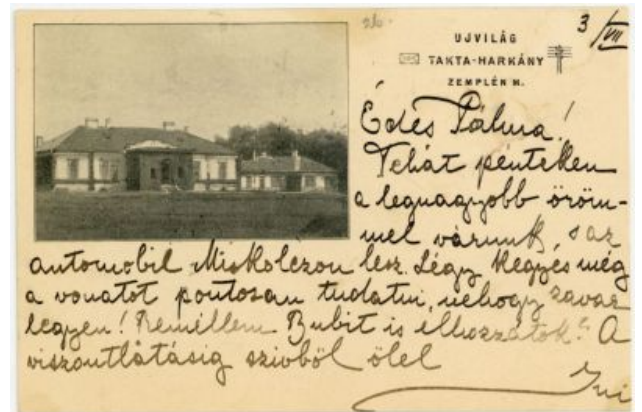 3/VII
UJVILÁG
TAKTA-HARKÁNY
ZEMPLÉN M.
Édes Pálma!
Tehát pénteken
a legnagyobb öröm-
mel várunk, s az
automobil Miskolczon lesz. Légy kegyes még
a vonatot pontosan tudatni, nehogy zavar
legyen! Remélem Bubit is elhozzátok? A
viszontlátásig szivből ölel